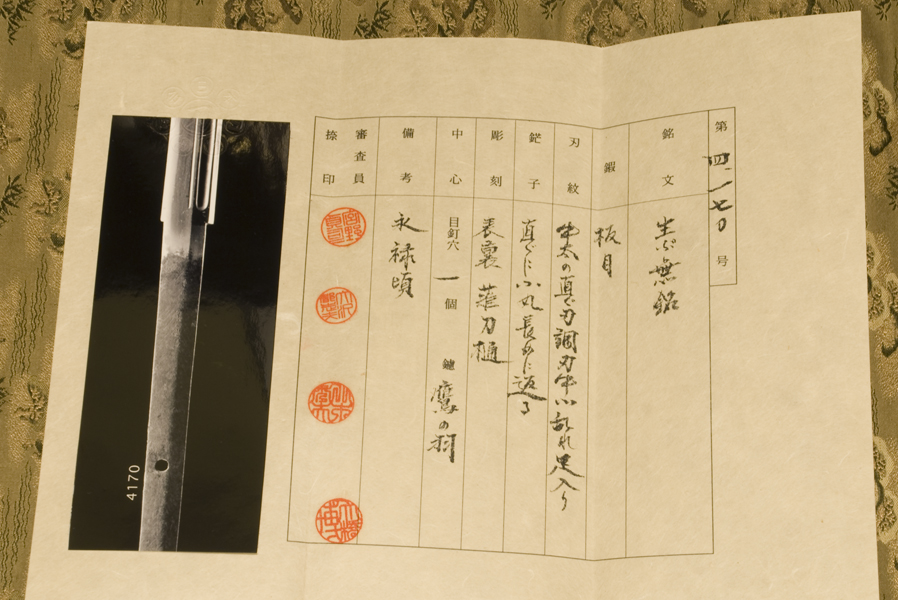 第四一七〇号
銘文
生ぶ無銘
鍛
板目
刃紋
中太の直ぐ刃調刃中小乱れ足入り
鋩子
直ぐに小丸長めに返る
彫刻
表裏 薙刀樋
中心
目釘穴 一個 鑢 鷹の羽
備考
永禄頃
審査員
捺印
4170